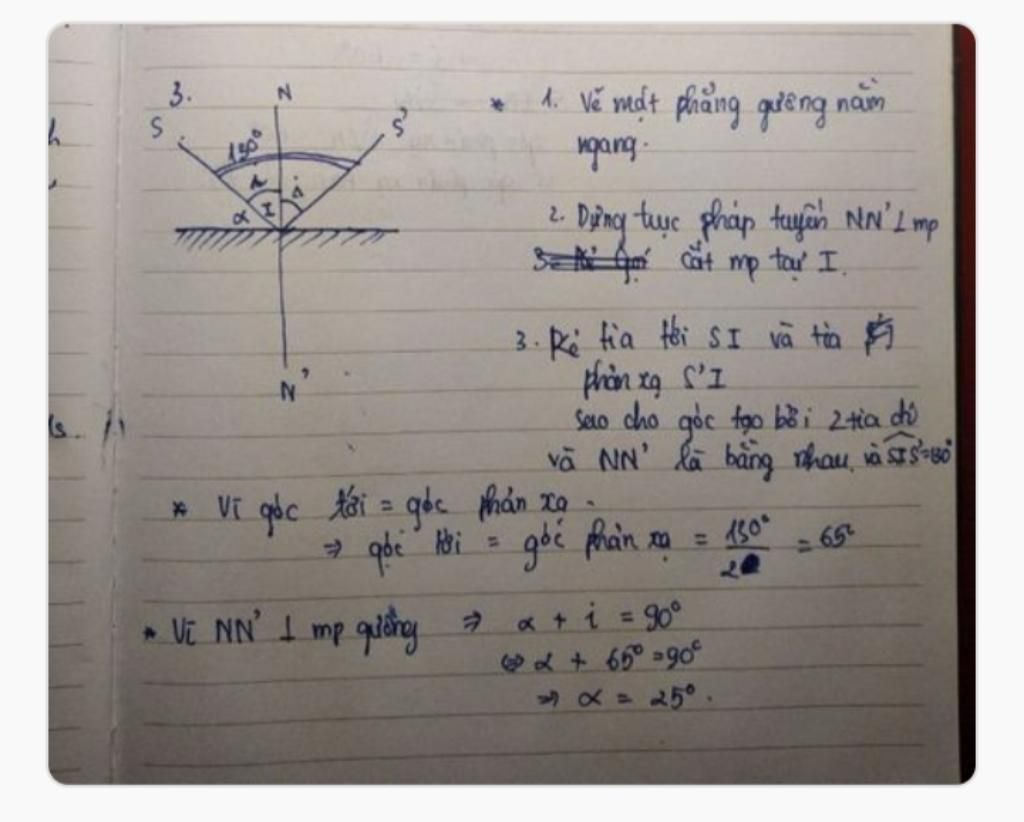 3.
N
S
S'
130°
i
i
α
I
N'
* 1. Vẽ mặt phẳng gương nằm
ngang.
2. Dựng trục pháp tuyến NN' ⊥ mp
cắt mp tại I.
3. Kẻ tia tới SI và tia
phản xạ S'I
sao cho góc tạo bởi 2 tia đó
và NN' là bằng nhau, và SIS' = 130°
* Vì góc tới = góc phản xạ.
⇒ góc tới = góc phản xạ = 130°/2 = 65°
* Vì NN' ⊥ mp gương ⇒ α + i = 90°
⇔ α + 65° = 90°
⇒ α = 25°.